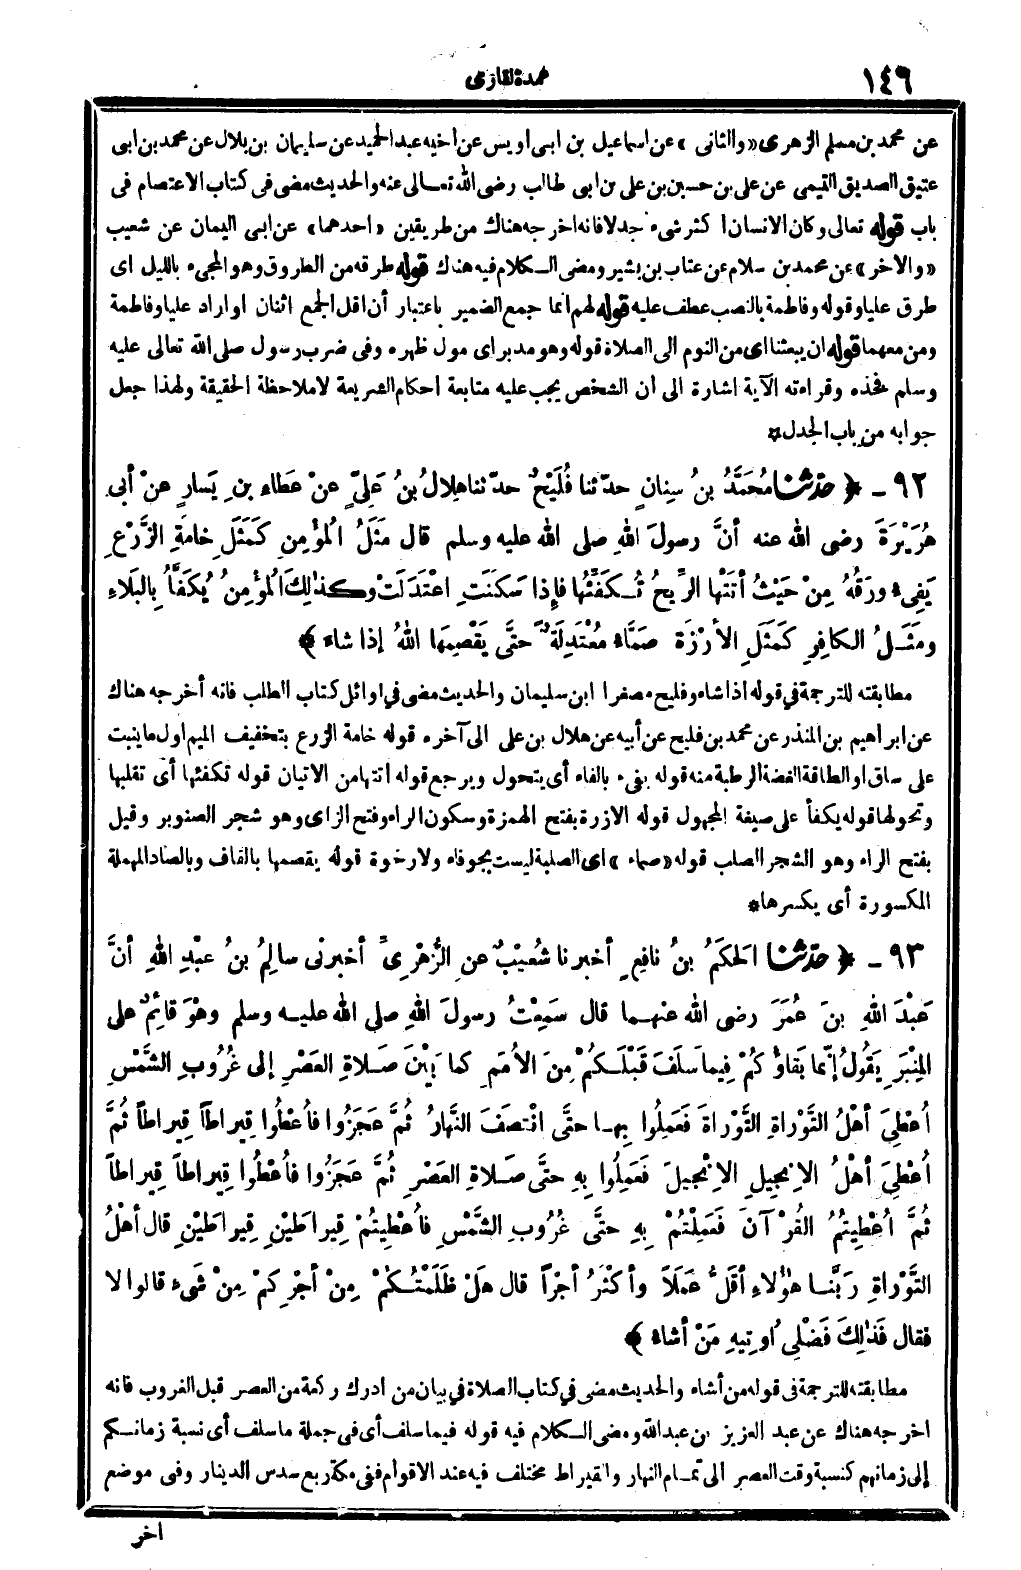 ١٤٦
عمدة القارى
عن محمد بن مسلم الزهرى «والثانى» عن اسماعيل بن ابى اويس عن اخيه عبد الحميد عن سليمان بن بلال عن محمد بن ابى
عتيق الصديق التيمى عن على بن حسين بن على بن ابى طالب رضى الله تعالى عنه والحديث مضى فى كتاب الاعتصام فى
باب قوله تعالى وكان الانسان اكثر شىء جدلا فانه اخرجه هناك من طريقين «احدهما» عن ابى اليمان عن شعيب
«والاخر» عن محمد بن سلام عن عتاب بن بشير ومضى الكلام فيه هناك قوله طرقه من الطروق وهو المجىء بالليل اى
طرق عليا وقوله وفاطمة بالنصب عطف عليه قوله لهم انما جمع الضمير باعتبار أن اقل الجمع اثنان او اراد عليا وفاطمة
ومن معهما قوله ان يبعثنا اى من النوم الى الصلاة قوله وهو مدبر اى مول ظهره وفى ضرب رسول صلى الله تعالى عليه
وسلم فخذه وقراءته الآية اشارة الى أن الشخص يجب عليه متابعة احكام الشريعة لا ملاحظة الحقيقة ولهذا جعل
جوابه من باب الجدل *
٩٢ - ﴿ حدثنا مُحَمَّدُ بنُ سِنانٍ حدّثنا فُلَيْحٌ حدّثنا هِلالُ بنُ عَلِيٍّ عنْ عَطَاءِ بنِ يَسارٍ عنْ أبى
هُرَيْرَةَ رضى الله عنه أنَّ رسولَ اللهِ صلى الله عليه وسلم قال مَثَلُ المُؤْمِنِ كَمَثَلِ خامَةِ الزَّرْعِ
يَفِيءُ ورَقُهُ مِنْ حَيْثُ أتَتْها الرِّيحُ تُكَفِّئُها فإِذا سَكَنَتِ اعْتَدَلَتْ وكذٰلِكَ المُؤْمِنُ يُكَفَّأُ بِالبَلاءِ
ومَثَلُ الكافِرِ كَمَثَلِ الأرْزَةِ صَمَّاءَ مُعْتَدِلَةً حتَّى يَقْصِمَها اللهُ إذا شاءَ ﴾
مطابقته للترجمة في قوله اذا شاء وفليح مصغرا ابن سليمان والحديث مضى في اوائل كتاب الطلب فانه أخرجه هناك
عن ابراهيم بن المنذر عن محمد بن فليح عن أبيه عن هلال بن على الى آخره قوله خامة الزرع بتخفيف الميم اول ما ينبت
على ساق او الطاقة الغضة الرطبة منه قوله يفىء بالفاء أى يتحول ويرجع قوله اتتها من الاتيان قوله تكفئها أى تقلبها
وتحولها قوله يكفأ على صيغة المجهول قوله الارزة بفتح الهمزة وسكون الراء وفتح الزاى وهو شجر الصنوبر وقيل
بفتح الراء وهو الشجر الصلب قوله «صماء» اى الصلبة ليست بجوفاء ولا رخوة قوله يقصمها بالقاف وبالصاد المهملة
المكسورة أى يكسرها *
٩٣ - ﴿ حدثنا الحَكَمُ بنُ نافِعٍ أخبرنا شُعَيْبٌ عنِ الزُّهْرِىِّ أخبرنى سالِمُ بنُ عبْدِ اللهِ أنَّ
عَبْدَ اللهِ بنَ عُمَرَ رضى الله عنهما قال سَمِعْتُ رسولَ اللهِ صلى الله عليه وسلم وهْوَ قائِمٌ على
المِنْبَرِ يَقُولُ إنَّما بَقاؤُكُمْ فِيما سَلَفَ قَبْلَكُمْ مِنَ الأُمَمِ كما بَيْنَ صَلاةِ العَصْرِ إلى غُرُوبِ الشَّمْسِ
أُعْطِيَ أهْلُ التَّوْراةِ التَّوْراةَ فَعَمِلُوا بِها حتَّى انْتَصَفَ النَّهارُ ثُمَّ عَجَزُوا فأُعْطُوا قِيراطاً قِيراطاً ثُمَّ
أُعْطِيَ أهْلُ الإِنْجِيلِ الإِنْجِيلَ فَعَمِلُوا بِهِ حتَّى صَلاةِ العَصْرِ ثُمَّ عَجَزُوا فأُعْطُوا قِيراطاً قِيراطاً
ثُمَّ أُعْطِيتُمُ القُرْآنَ فَعَمِلْتُمْ بِهِ حتَّى غُرُوبِ الشَّمْسِ فأُعْطِيتُمْ قِيراطَيْنِ قِيراطَيْنِ قال أهْلُ
التَّوْراةِ رَبَّنا هٰؤُلاءِ أقَلُّ عَمَلاً وأكْثَرُ أجْراً قال هَلْ ظَلَمْتُكُمْ مِنْ أجْرِكُمْ مِنْ شَىْءٍ قالوا لا
فقال فَذٰلِكَ فَضْلِي أُوتِيهِ مَنْ أشاءُ ﴾
مطابقته للترجمة فى قوله من أشاء والحديث مضى في كتاب الصلاة في بيان من ادرك ركعة من العصر قبل الغروب فانه
اخرجه هناك عن عبد العزيز بن عبد الله ومضى الكلام فيه قوله فيما سلف أى فى جملة ما سلف أى نسبة زمانكم
إلى زمانهم كنسبة وقت العصر الى تمام النهار والقيراط مختلف فيه عند الاقوام ففى مكة ربع سدس الدينار وفى موضع
اخر